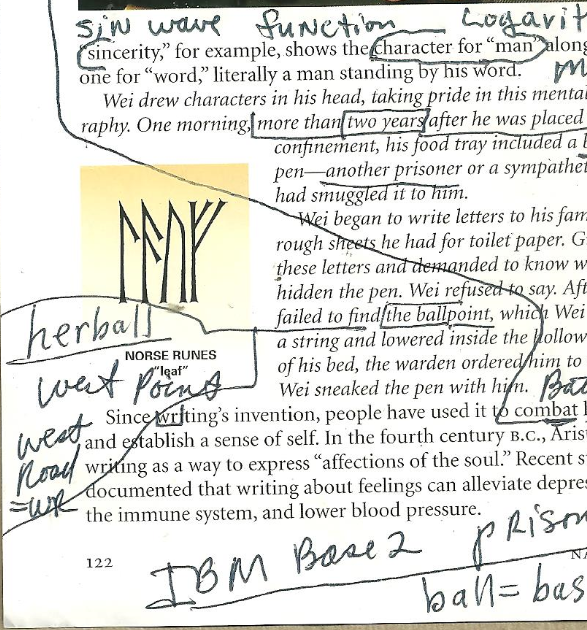 sin wave function Logarit
sincerity,” for example, shows the character for “man” along
one for “word,” literally a man standing by his word.
Wei drew characters in his head, taking pride in this mental
raphy. One morning, more than two years after he was placed
confinement, his food tray included a b
pen—another prisoner or a sympathet
had smuggled it to him.
Wei began to write letters to his fam
rough sheets he had for toilet paper. G
these letters and demanded to know w
hidden the pen. Wei refused to say. Aft
failed to find the ballpoint, which Wei
a string and lowered inside the hollow
of his bed, the warden ordered him to
Wei sneaked the pen with him.
ᛚᚨᚢᚠ
herball
NORSE RUNES
“leaf”
West Point
Since writing’s invention, people have used it to combat l
and establish a sense of self. In the fourth century B.C., Aris
writing as a way to express “affections of the soul.” Recent s
documented that writing about feelings can alleviate depre
the immune system, and lower blood pressure.
West
Road
=WR
122
IBM Base 2 prison
NA
ball= bas